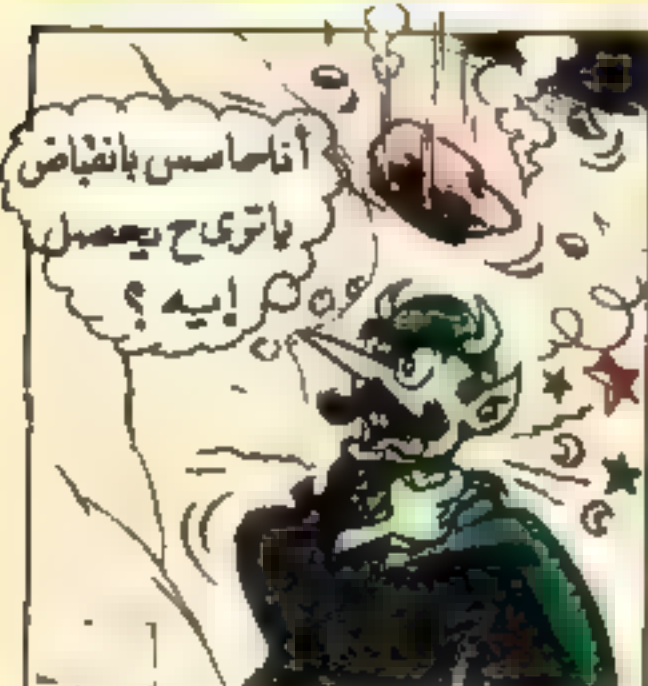 أنا حاسس بانقباض
ياترى ح يحصل
إيه ؟